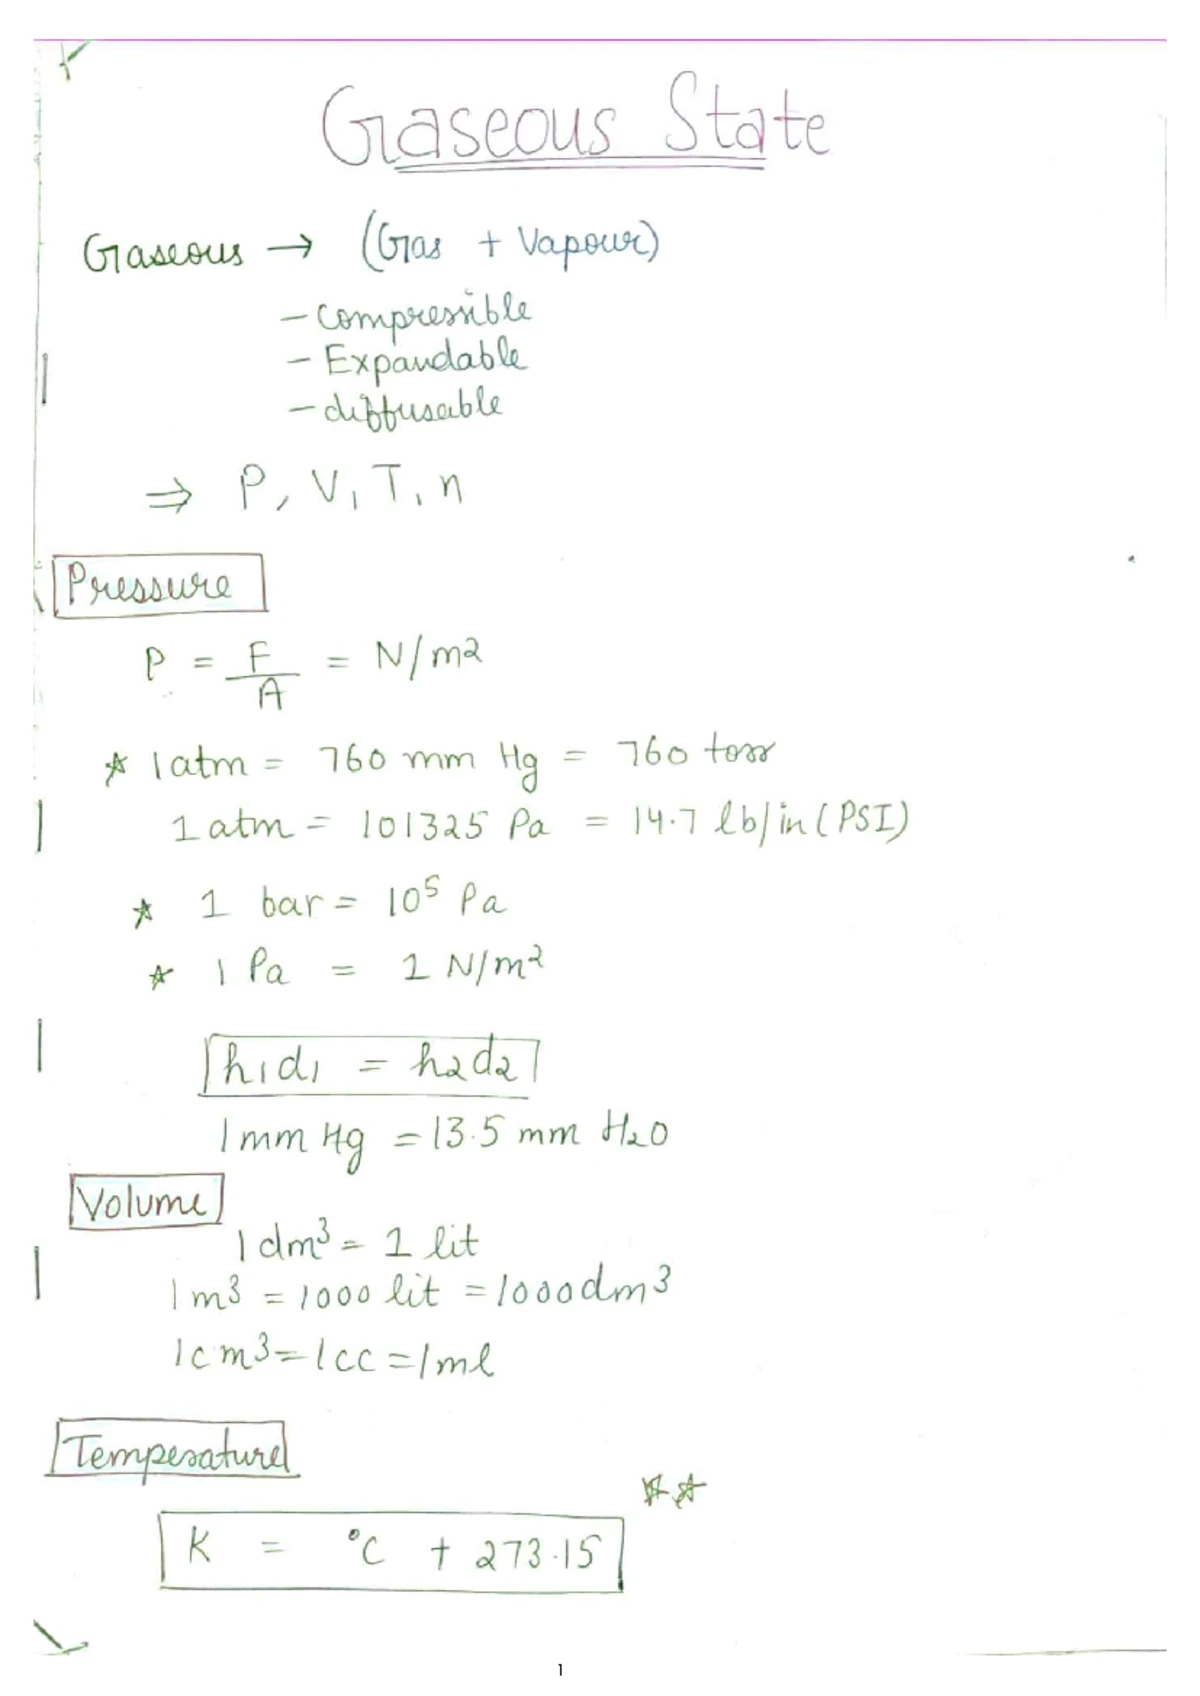 Gaseous State
Gaseous → (Gas + Vapour)
- Compressible
- Expandable
- diffusable
⇒ P, V, T, n
Pressure
P = F/A = N/m2
☆ 1 atm = 760 mm Hg = 760 torr
1 atm = 101325 Pa = 14.7 lb/in (PSI)
☆ 1 bar = 10⁵ Pa
☆ 1 Pa = 1 N/m²
h1d1 = h2d2
1 mm Hg = 13.5 mm H2O
Volume
1 dm³ = 1 lit
1 m3 = 1000 lit = 1000 dm3
1 cm3 = 1 cc = 1 ml
Temperature
☆☆
K = °C + 273.15
1